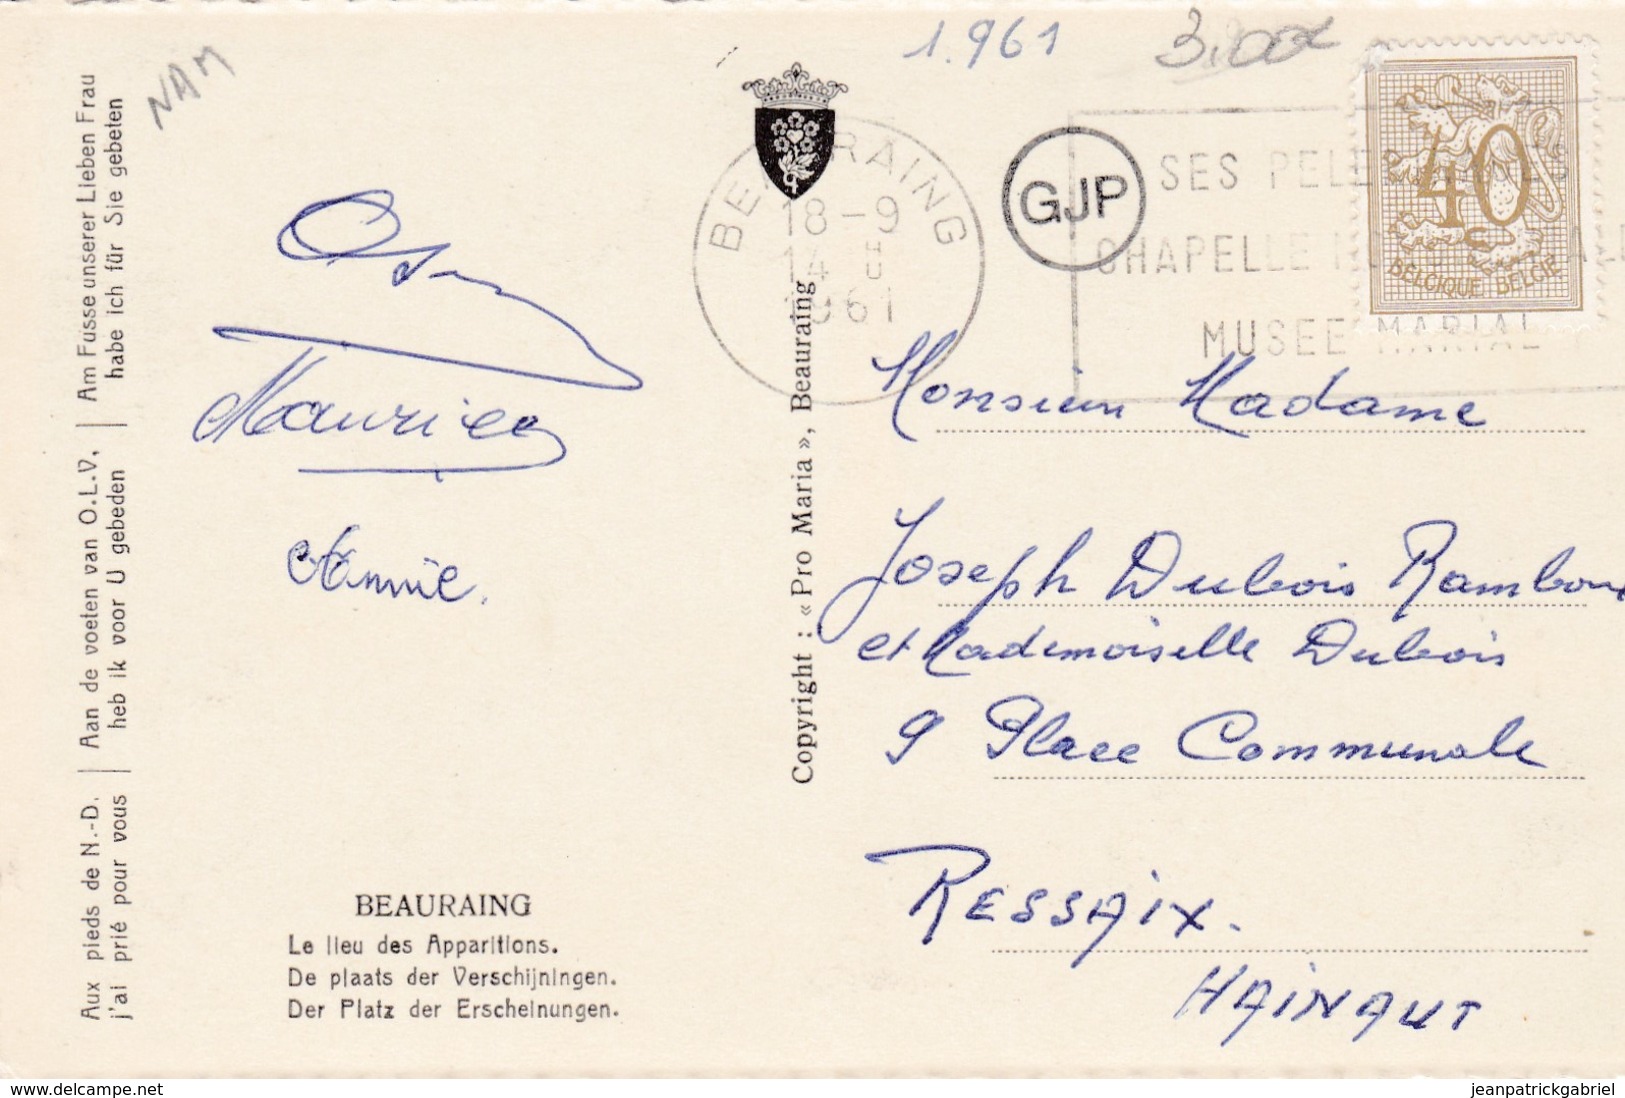 NAM
1.961
3.00
Aux pieds de N.-D.
j'ai prié pour vous
Aan de voeten van O.L.V.
heb ik voor U gebeden
Am Füsse unserer Lieben Frau
habe ich für Sie gebeten
Maurice
Annie.
BEAURAING
Le lieu des Apparitions.
De plaats der Verschijningen.
Der Platz der Erscheinungen.
Copyright : « Pro Maria », Beauraing
BEAURAING
18-9
14
1961
GJP
SES PELERINAGES
CHAPELLE
MUSEE MARIAL
40
BELGIQUE BELGIE
Monsieur Madame
Joseph Dubois
et Mademoiselle Dubois
9 Place Communale
RESSAIX.
HAINAUT
delcampe.net
jeanpatrickgabriel